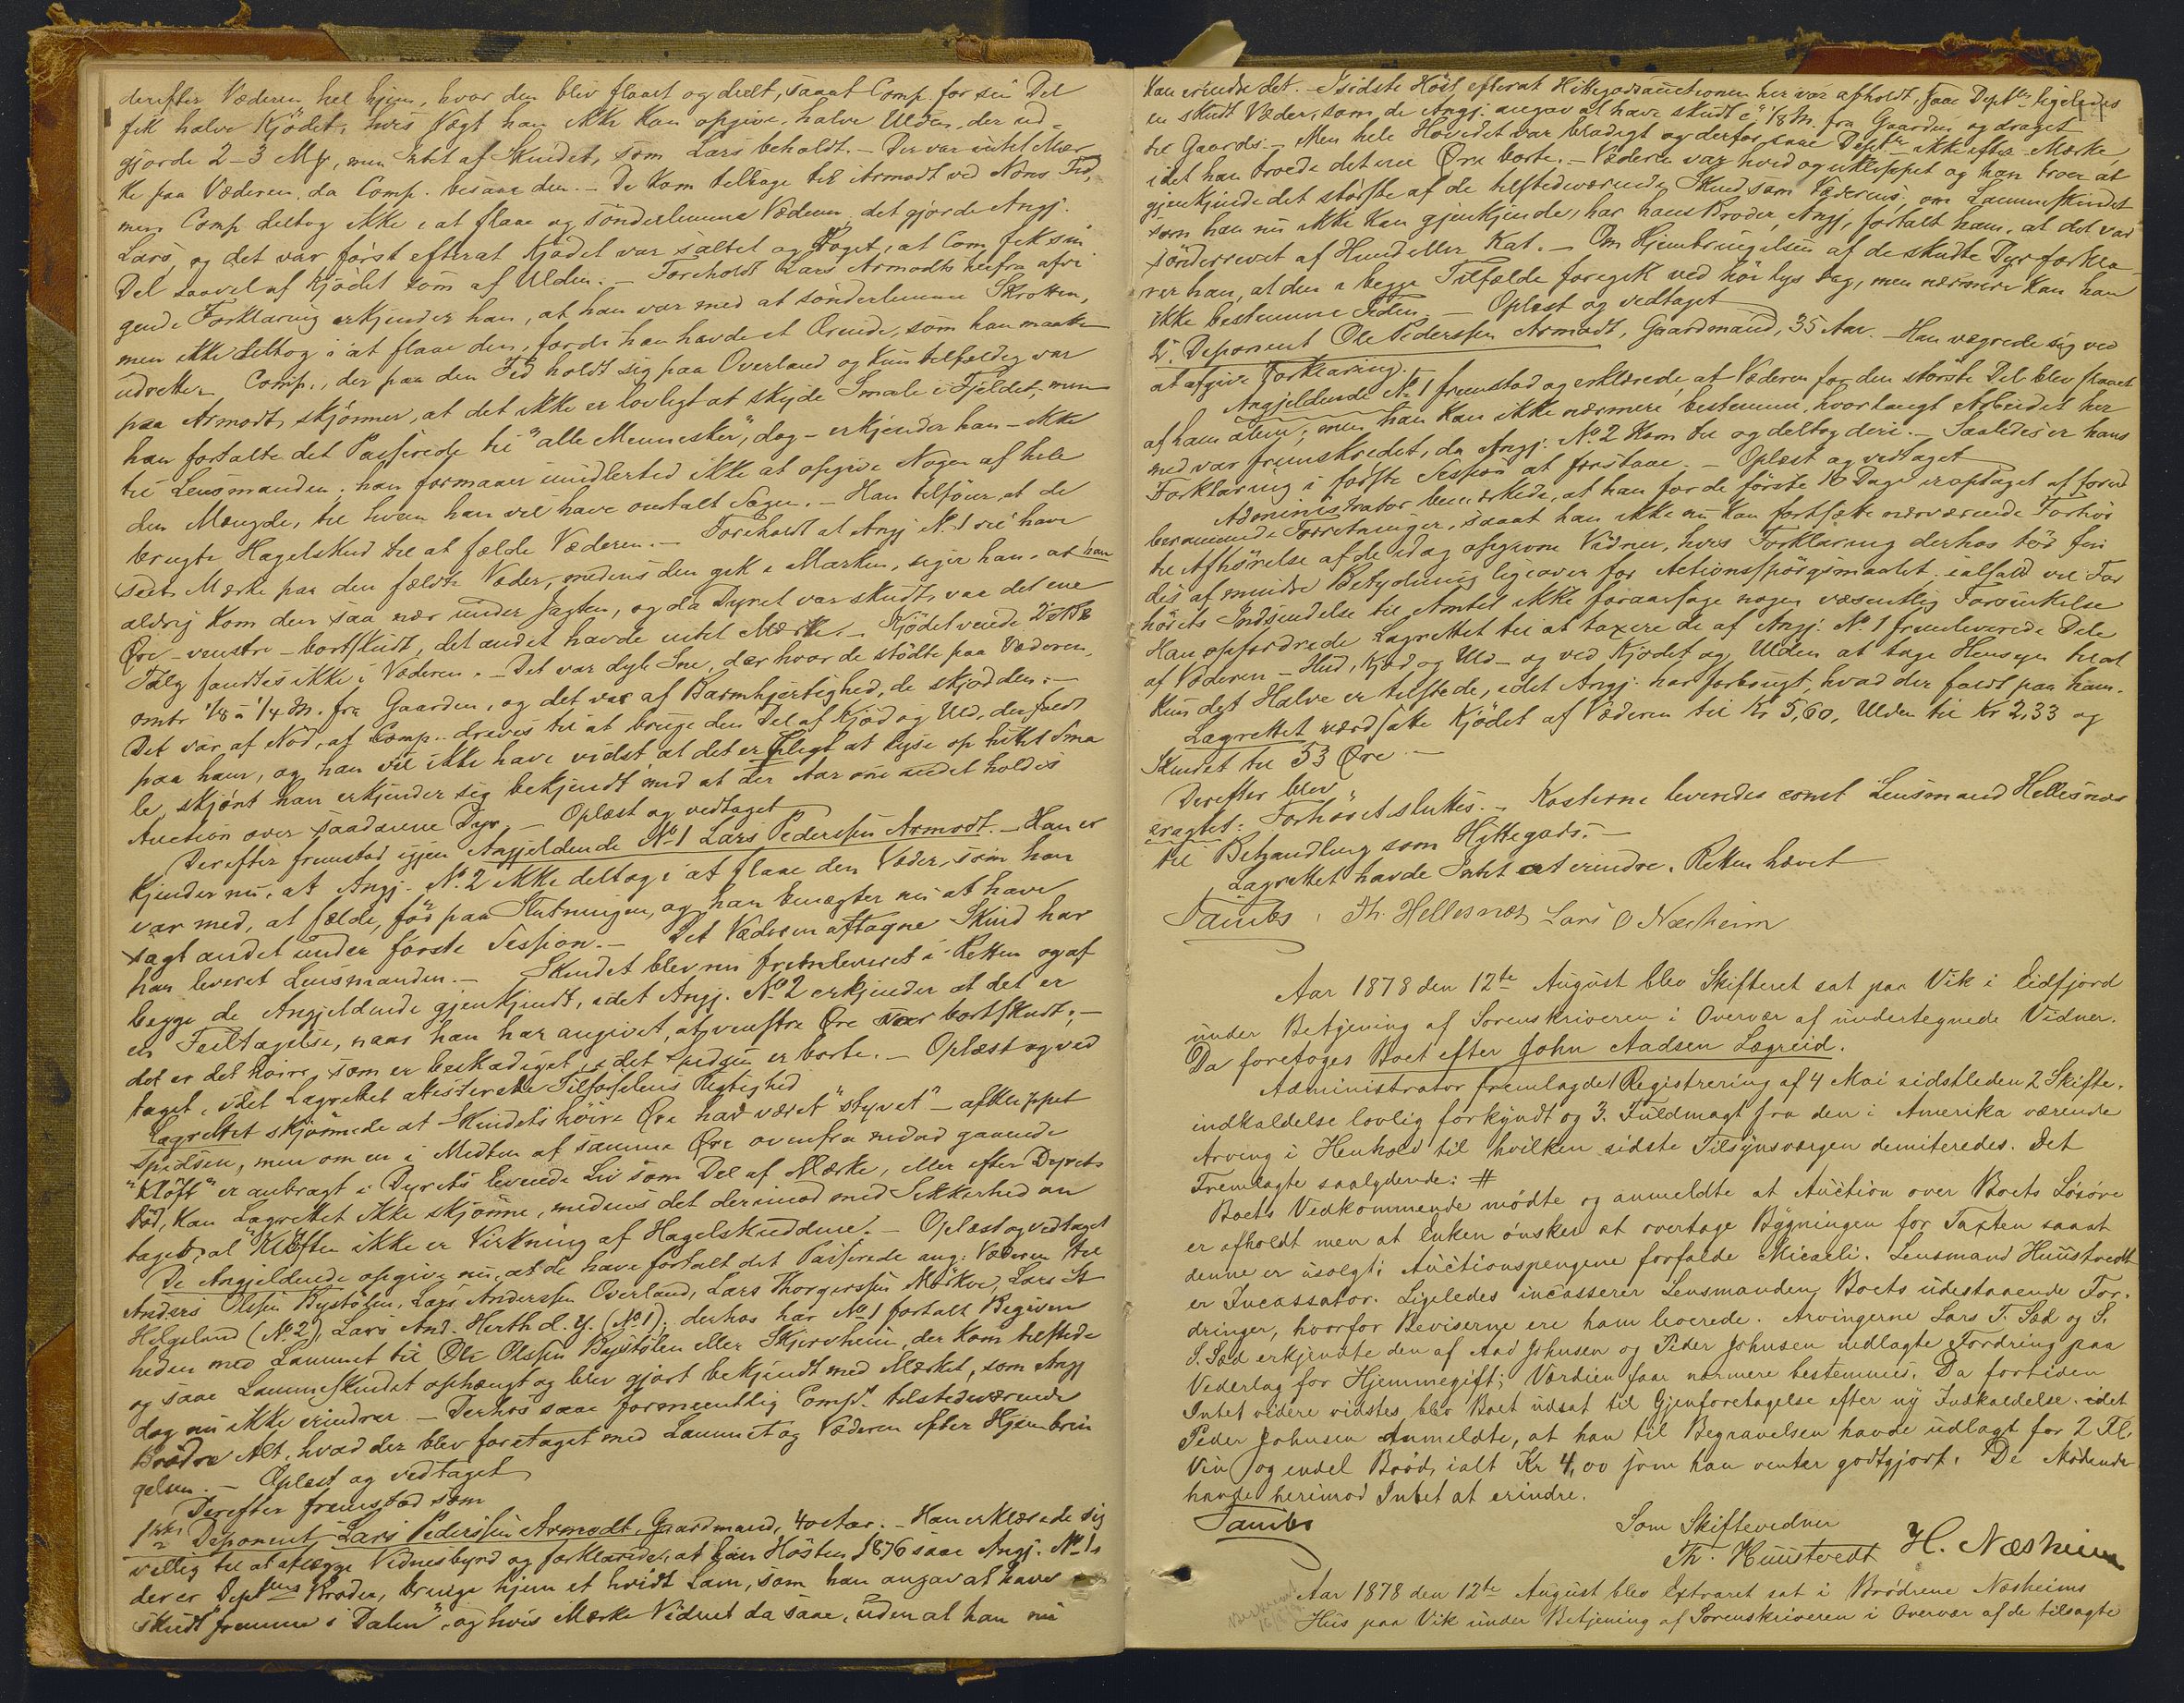 derefter Væderen hel hjem, hvor den blev flaaet og deelt, saaat Comp. for sin Del
fik halve Kjödet, hvis Vægt han ikke kan opgive, halve Ulden, der ud-
gjorde 2-3 Mk, men Intet af Skindet, som Lars beholdt. - Der var intet Mær-
ke paa Væderen, da Comp. besaae den. - De kom tilbage til Armodt ved Nons Tid,
men Comp deltog ikke i at flaae og sönderlemme Væderen, det gjorde Angj.
Lars, og det var först efterat Kjödet var saltet og töget, at Com fik sin
Del saavel af Kjödet som af Ulden. - Foreholdt Lars Armodts herfra afvi
gende Forklaring erkjender han, at han var med at sönderlemme Skrotten,
men ikke deltog i at flaae den, fordi han havde et Ærinde, som han maatte
udrette. Comp., der paa den Tid holdt sig paa Overland og kun tilfældig var
paa Armodt, skjönner, at det ikke er lovligt at skyde Smale i Fjeldet, men
han fortalte det Passerede til "alle Mennesker", dog - erkjender han - ikke
til Lensmanden; han formaaer imidlertid ikke at opgive Nogen af hele
den Mængde, til hvem han vil have omtalt Sagen. - Han tilföier, at de
brugte Hagelskud til at fælde Væderen. - Foreholdt at Angj No 1 vil have
seet Mærke paa den fældte Væder, medens den gik i Marken, siger han at han
aldrig kom den saa nær under Jagten, og da Dyret var skudt, var det ene
Öre - venstre - bortskudt, det andet havde intet Mærke. - Kjödet veiede
Talg fandtes ikke i Væderen. - Det var dyb Sne, der hvor de stödte paa Væderen,
omtr 1/8 à 1/4 M. fra Gaarden, og det var af Barmhjertighed, de skjöd den. -
Det var af Nöd, at Comp. dreves til at bruge den Del af Kjöd og Uld, der faldt
paa ham, og han vil ikke have vidst, at det er Pligt at lyse op hittet Sma
le, skjönt han erkjender sig bekjendt med at der Aar om andet holdes
Auction over saadanne Dyr. - Oplæst og vedtaget
Derefter fremstod igjen Angjeldende No 1 Lars Pederssen Armodt. - Han er
kjender nu, at Angj. No. 2 ikke deltog i at flaae den Væder, som han
var med, at fælde, för paa Slutningen, og han benægter nu at have
sagt andet under förste Session. - Det Væderen aftagne Skind har
han leveret Lensmanden. - Skindet blev nu fremleveret i Retten og af
begge de Angjeldende gjenkjendt, idet Angj. No 2 erkjender at det er
en Feiltagelse, naar han har angivet, at venstre Öre var bortskudt; -
det er det höire, som er beskadiget, idet Spidsen er borte. - Oplæst og ved
taget, idet Lagrettet attesterede Tilförselens Rigtighed
Lagrettet skjönnede at Skindets höire Öre har været "styvet" - afklippet
Spidsen, men om en i Midten af samme Öre ovenfra nedad gaaende
"Klöft" er anbragt i Dyrets levende Liv som Del af Mærke, eller efter Dyrets
Död, kan Lagrettet ikke skjönne, medens det derimod med Sikkerhed an
tages, at Klöften ikke er Virkning af Hagelskuddene. - Oplæst og vedtaget
De Angjeldende opgive nu, at de have fortalt det Passerede ang: Væderen til
Anders Olssen Bystölen, Lars Anderssen Overland, Lars Thorgerssen Mörkve, Lars
Helgeland (No. 2), Lars And. Herth d. y. (No. 1); derhos har No 1 fortalt Begiven
heden med Lammet til Ole Olssen Bystölen eller Skjervheim, der kom tilstede
og saae Lammeskindet ophængt og blev gjort bekjendt med Mærket, som Angj
dog nu ikke erindrer. - Derhos saae formeentlig Comps tilstedeværende
Brödre Alt, hvad der blev foretaget med Lammet og Væderen efter Hjembrin
gelsen. - Oplæst og vedtaget
Derefter fremstod som
1ste Deponent Lars Pederssen Armodt, Gaardmand, 40 Aar. - Han erklærede sig
villig til at aflægge Vidnesbyrd og forklarede, at han Hösten 1876 saae Angj. No 1,
der er Deptens Broder, bringe hjem et hvidt Lam, som han angav at have
skudt "fremme i Dalen", og hvis Mærke Vidnet da saae, uden at han nu
kan erindre det. - Isidste Höst, efterat Hittegodsauctionen her var afholdt, saae Depten ligeledes
en skudt Væder, som de Angj. angav at have skudt c. 1/8 M. fra Gaarden og draget
til Gaards. - Men hele Hovedet var blodigt og derfor saae Depten ikke efter Mærke,
idet han troede det ene Öre borte. - Væderen var hvid og uklippet og han troer at
gjenkjende det störste af de tilstedeværende Skind som Væderens; om Lammeskindet
som han nu ikke kan gjenkjende, har hans Broder, Angj, fortalt ham, at det var
sönderrevet af Hund eller Kat. - Om Hjembringelsen af de skudte Dyr forkla-
rer han, at den i begge Tilfælde foregik ved höi lys Dag, men nærmere kan han
ikke bestemme Tiden. - Oplæst og vedtaget
2. Deponent Ole Pederssen Armodt, Gaardmand, 35 Aar. - Han vægrede sig ved
at afgive Forklaring.
Angjeldende No 1 fremstod og erklærede, at Væderen for den störste Del blev flaaet
af ham alene; men han kan ikke nærmere bestemme, hvorlangt Arbeidet her
med var fremskredet, da Angj. No. 2 kom til og deltog deri. - Saaledes er hans
Forklaring i förste Session at forstaae. - Oplæst og vedtaget
Administrator bemærkede, at han for de förste Dage er optaget af forud
berammede Forretninger, saaat han ikke nu kan fortsætte nærværende Forhör
til Afhörelse af de idag opgivne Vidner, hvis Forklaring derhos tör fin
des af mindre Betydning ligeover for Actionsspörgsmaalet; ialfald vil For
hörets Indsendelse til Amtet ikke foraarsage nogen væsentlig Forsinkelse
Han opfordrede Lagrettet til at taxere de af Angj. No. 1 fremleverede Dele
af Væderen - Hud, Kjöd og Uld - og ved Kjödet og Ulden at tage Hensyn til at
kun det Halve er tilstede, idet Angj. har forbrugt, hvad der faldt paa ham.
Lagrettet værdsatte Kjödet af Væderen til Kr 5,60, Ulden til Kr 2,33 og
Skindet til 53 Öre. -
Derefter blev
eragtet: Forhöret sluttes. - Kosterne leveredes const Lensmand Hellesnæs
til Behandling som Hittegods. -
Lagrettet havde Intet at erindre. Retten hævet
Th. Hellesnæs Lars O Næsheim
Aar 1878 den 12te August blev Skifteret sat paa Vik i Eidfjord
under Betjening af Sorenskriveren i Overvær af undertegnede Vidner.
Da foretoges Boet efter John Aadsen Lægreid.
Administrator fremlagde 1 Registrering af 4 Mai sidstleden 2 Skifte-
indkaldelse lovlig forkyndt og 3. Fuldmagt fra den i Amerika værende
Arving i Henhold til hvilken sidste Tilsynsværgen demiteredes. Det
Fremlagte saalydende: #
Boets Vedkommende mödte og anmeldte at Auction over Boets Lösöre
er afholdt men at Enken önsker at overtage Bygningen for Taxten saaat
denne er usolgt; Auctionspengene forfalde Micaeli. Lensmand Huustvedt
er Incassator. Ligeledes incasserer Lensmanden Boets udestaaende For-
dringer, hvorfor Beviserne ere ham leverede. Arvingerne Lars T. Sæd og S.
S. Sæd erkjendte den af Aad Johnsen og Peder Johnsen nedlagte Fordring paa
Vederlag for Hjemmegift; Værdien faar nærmere bestemmes. Da fortiden
Intet videre vidstes, blev Boet udsat til Gjenforetagelse efter ny Indkaldelse, idet
Peder Johnsen anmeldte, at han til Begravelsen havde udlagt for 2 Fl.
Vin og endel Bröd, ialt Kr 4,00 som han venter godtgjort. De Mödende
havde herimod Intet at erindre.
Som Skiftevidner
Th. Huustvedt H. Næsheim
Aar 1878 den 12te August blev Extraret sat i Brödrene Næsheims
Hus paa Vik under Betjening af Sorenskriveren i Overvær af de tilsagte